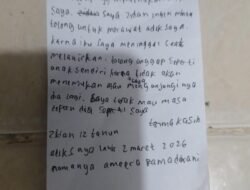 saya. saya zidan ingin minta
tolong untuk merawat adik saya.
karna ibu saya meninggal saat
melahirkan. tolong anggap seperti
anak sendiri saya tidak akan
menemukan atau mengunjungi nya
dia lagi. saya tidak mau masa
depan dia seperti saya
terima kasih
zidan 12 tahun
adik saya lahir 2 maret 2026
namanya ameera ramadhani